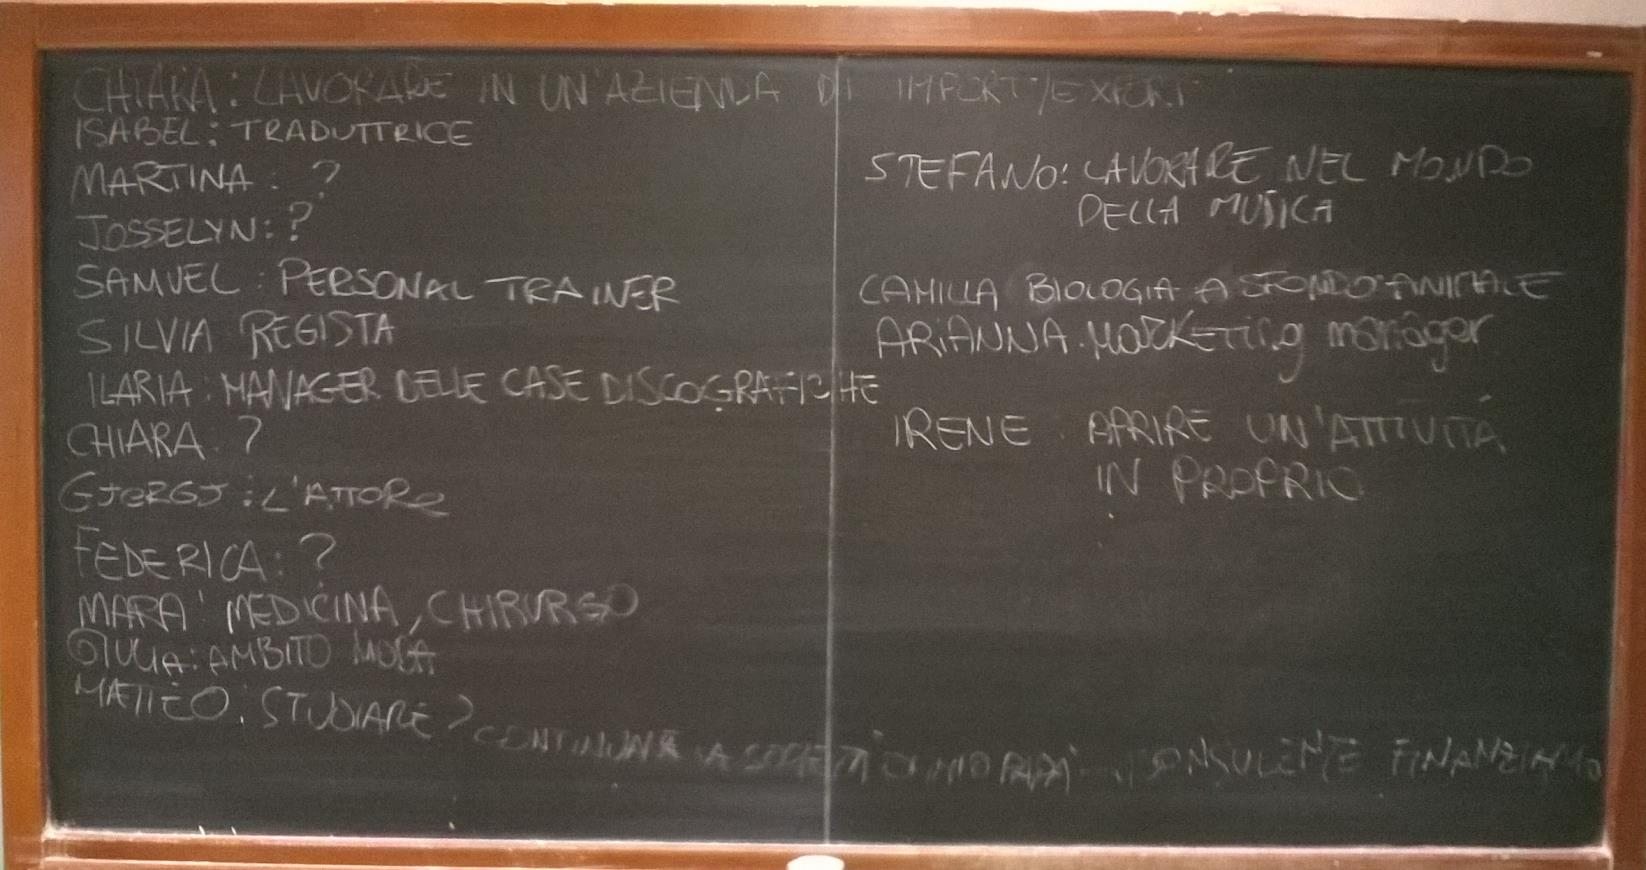 CHIARA: LAVORARE IN UN'AZIENDA DI IMPORT/EXPORT
ISABEL: TRADUTTRICE
MARTINA: ?
JOSSELYN: ?
SAMUEL: PERSONAL TRAINER
SILVIA REGISTA
ILARIA: MANAGER DELLE CASE DISCOGRAFICHE
CHIARA. ?
GJERGJ: L'ATTORE
FEDERICA: ?
MARA: MEDICINA, CHIRURGO
GIULIA: AMBITO MODA
MATTEO: STUDIARE? CONTINUARE LA SOCIETÀ DI MIO PAPÀ CONSULENTE FINANZIARIO
STEFANO: LAVORARE NEL MONDO
DELLA MUSICA
CAMILLA BIOLOGIA A SFONDO ANIMALE
ARiANNA. MARKETing manager
IRENE: APRIRE UN'ATTIVITÀ
IN PROPRIO